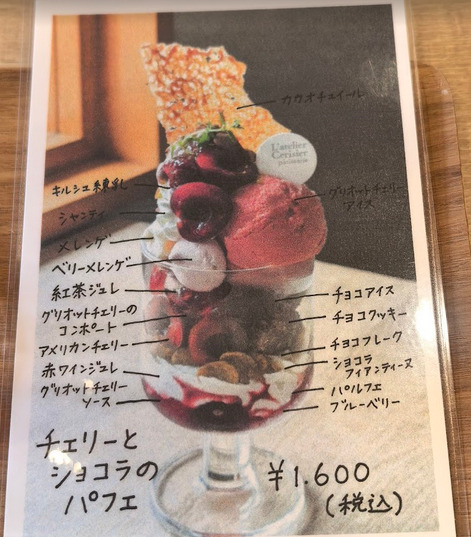 カカオチュイール
L'atelier
Cerisier
キルシュ練乳
グリオットチェリー
アイス
シャンティ
メレンゲ
ベリーメレンゲ
紅茶ジュレ
チョコアイス
グリオットチェリーの
コンポート
チョコクッキー
アメリカンチェリー
チョコフレーク
赤ワインジュレ
ショコラ
フィアンティーヌ
グリオットチェリー
ソース
パルフェ
ブルーベリー
チェリーと
ショコラの
パフェ
¥1.600
(税込)